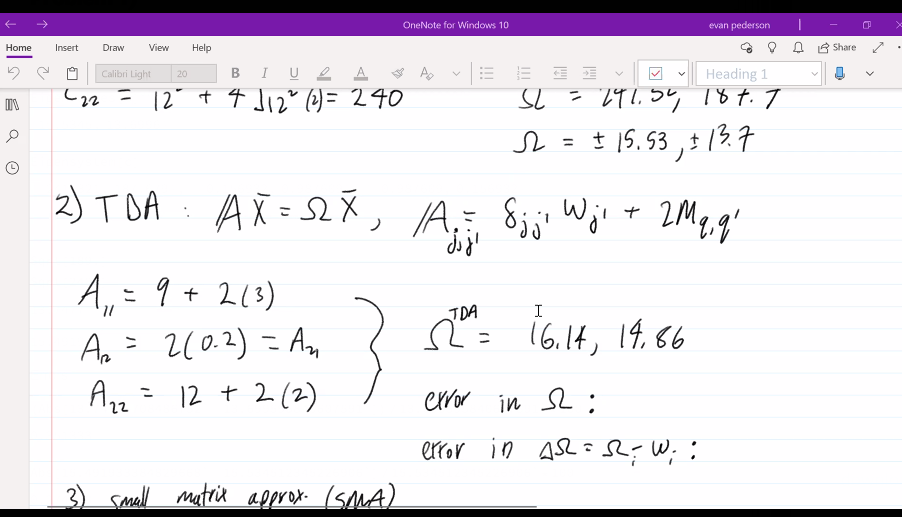 OneNote for Windows 10
evan pederson
Home Insert Draw View Help Share
Calibri Light 20 B I U A Heading 1
C₂₂ = 12² + 4√12² (2) = 240
Ω² = 241.52, 187.7
Ω = ± 15.53, ± 13.7
2) TDA : A X̄ = Ω X̄ , A_{j,j'} = δ_{jj'} W_{j'} + 2M_{q,q'}
A₁₁ = 9 + 2(3)
A₁₂ = 2(0.2) = A₂₁
A₂₂ = 12 + 2(2)
Ω^{TDA} = 16.14, 14.86
error in Ω :
error in ΔΩ = Ω_i - W_i :
3) small matrix approx. (SMA)